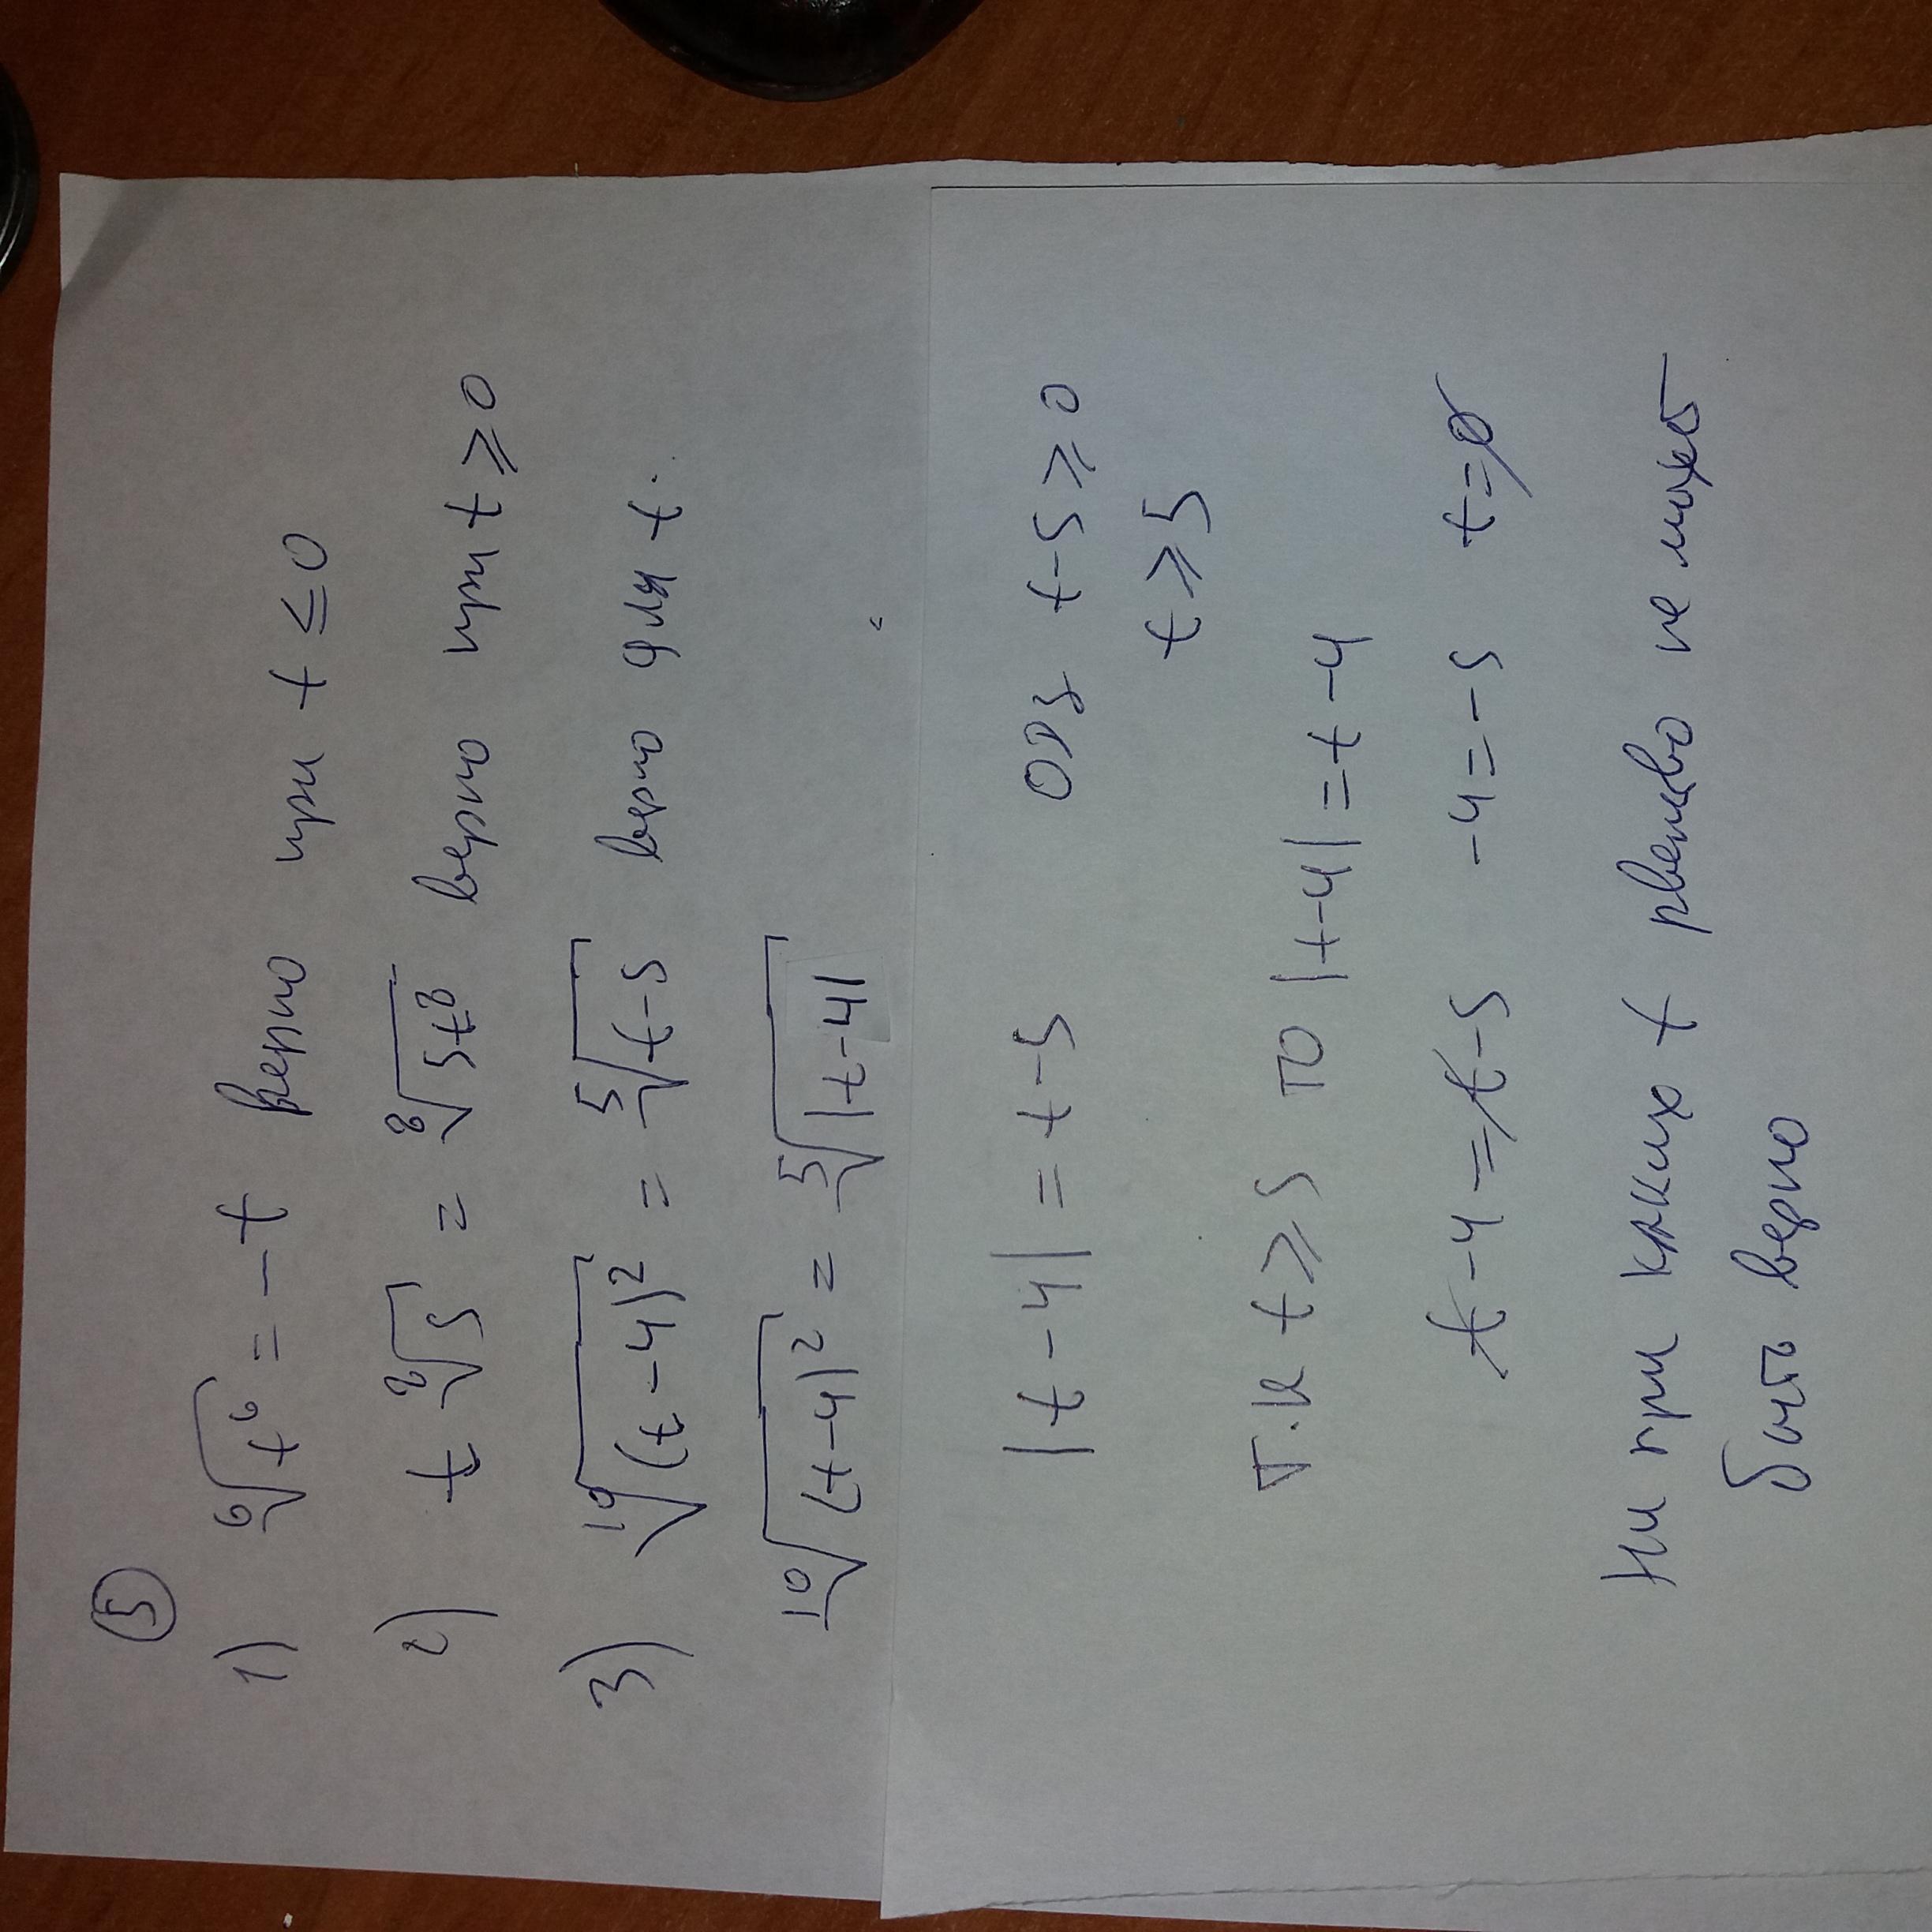 ⑤
1) ⁶√t⁶ = -t верно при t ≤ 0
2) t ⁸√5 = ⁸√5t⁸ верно при t ≥ 0
3) ¹⁰√(t-4)² = ⁵√t-5 верно для t.
¹⁰√(t-4)² = ⁵√|t-4|
|t-4| = t-5 ОДЗ t-5 ≥ 0
t ≥ 5
Т.к t ≥ 5 ТО |t-4| = t-4
t-4 = t-5 -4 = -5 t = ∅
Ни при каких t рвенство не может
быть верно